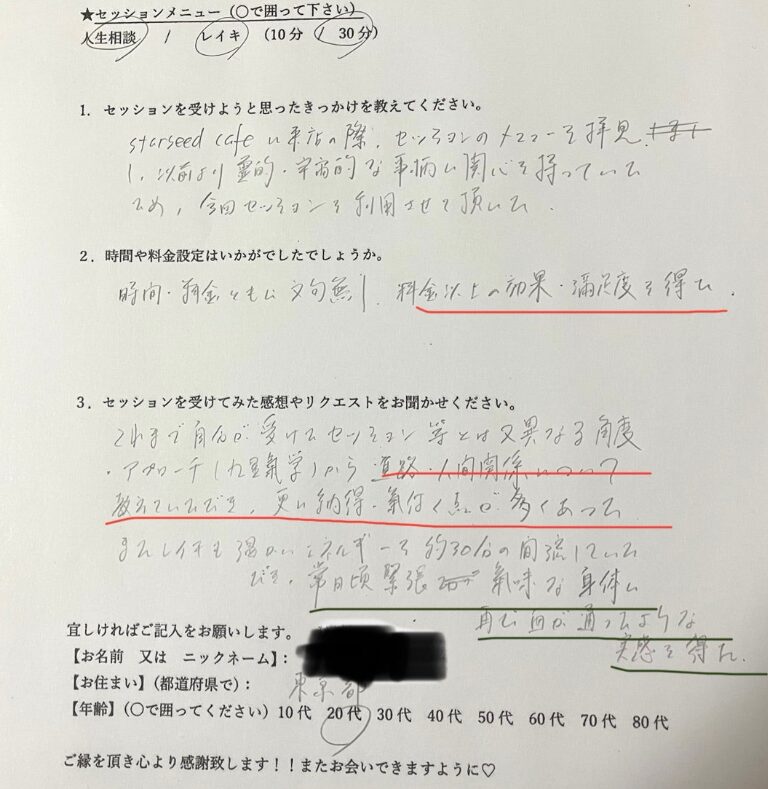 ★セッションメニュー（〇で囲って下さい）
人生相談 / レイキ （10分 / 30分）
1．セッションを受けようと思ったきっかけを教えてください。
starseed cafe に来店の際、セッションのメニューを拝見
し、以前より霊的・宇宙的な事柄に関心を持っていた
ため、今回セッションを利用させて頂いた．
2．時間や料金設定はいかがでしたでしょうか。
時間・料金ともに文句無し．料金以上の効果・満足度を得た．
3．セッションを受けてみた感想やリクエストをお聞かせください。
これまで自分が受けたセッション等とは又異なる角度
・アプローチ（九星氣学）から進路・人間関係について
教えていただき、更に納得・氣付く点が多くあった
またレイキも温かいエネルギーを約30分の間流していた
だき、常日頃緊張氣味な身体に
再び血が通ったような
実感を得た．
宜しければご記入をお願いします。
【お名前　又は　ニックネーム】：
【お住まい】（都道府県で）： 東京都
【年齢】（〇で囲ってください）10代　20代　30代　40代　50代　60代　70代　80代
ご縁を頂き心より感謝致します！！またお会いできますように♡